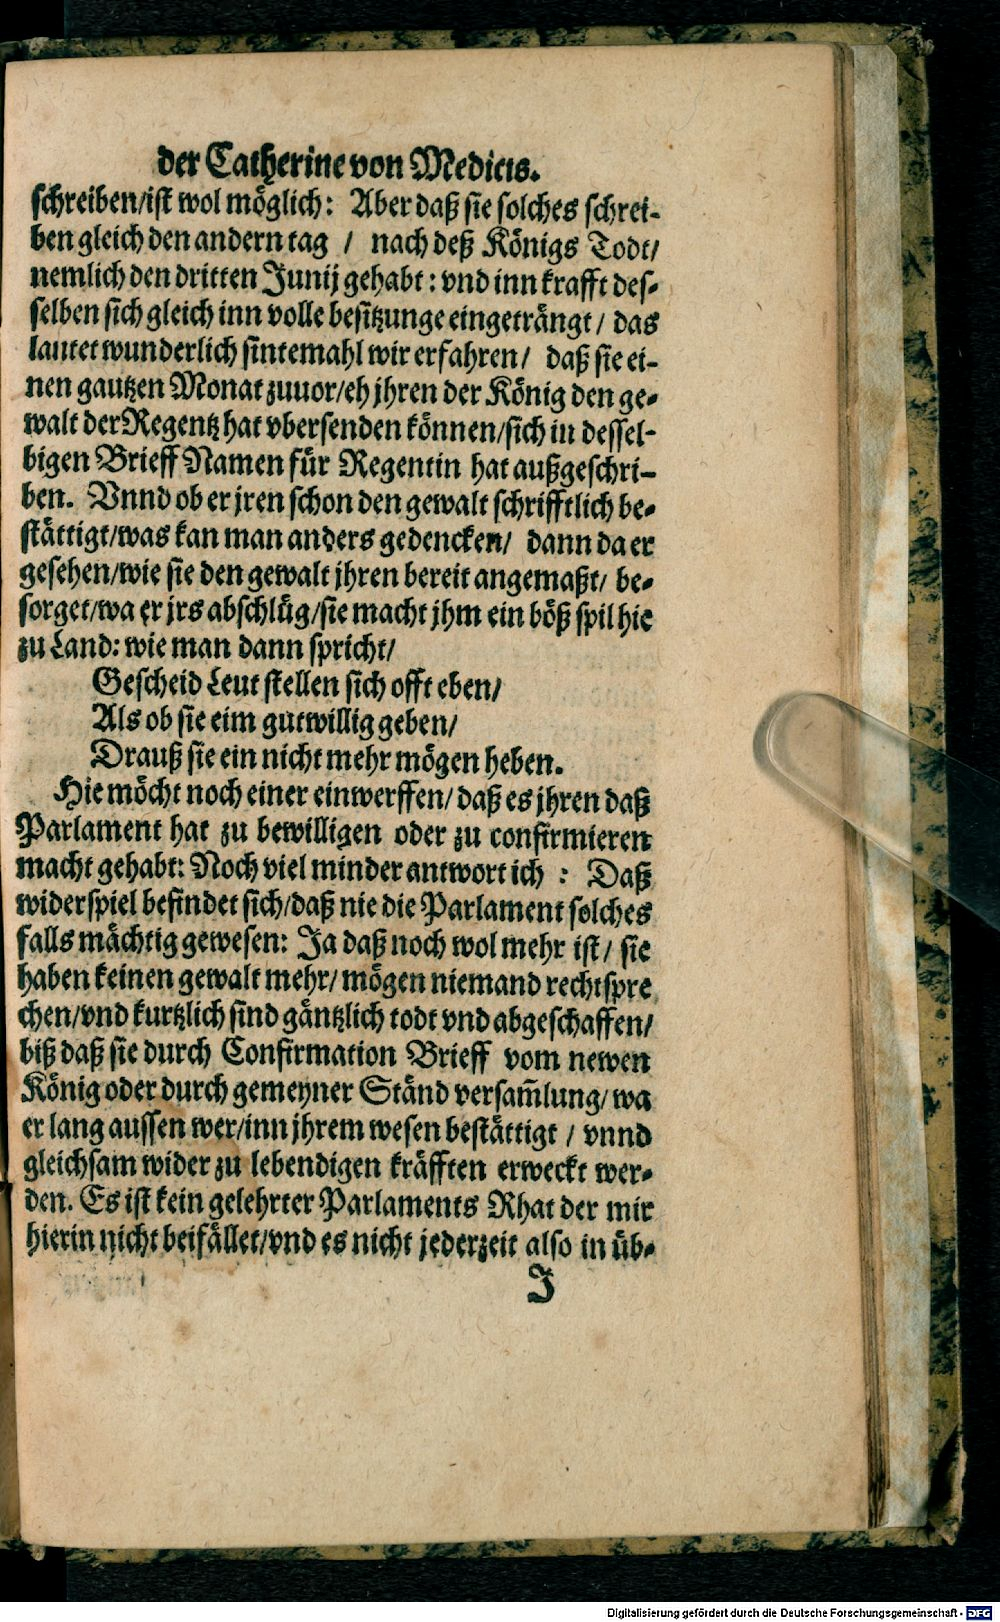 der Catherine von Medicis.
schreiben/ist wol möglich: Aber daß sie solches schrei-
ben gleich den andern tag / nach deß Königs Todt/
nemlich den dritten Junij gehabt: vnd inn krafft des-
selben sich gleich inn volle besitzunge eingeträngt/ das
lautet wunderlich sintemahl wir erfahren/ daß sie ei-
nen gautzen Monat zuuor/eh jhren der König den ge-
walt der Regentz hat vbersenden können/sich in dessel-
bigen Brieff Namen für Regentin hat außgeschri-
ben. Vnnd ob er jren schon den gewalt schrifftlich be-
stättigt/was kan man anders gedencken/ dann da er
gesehen/wie sie den gewalt jhren bereit angemaßt/ be-
sorget/wa er jrs abschlüg/sie macht jhm ein böß spil hie
zu Land: wie man dann spricht/
Gescheid Leut stellen sich offt eben/
Als ob sie eim gutwillig geben/
Drauß sie ein nicht mehr mögen heben.
Hie möcht noch einer einwerffen/ daß es jhren daß
Parlament hat zu bewilligen oder zu confirmieren
macht gehabt: Noch viel minder antwort ich : Daß
widerspiel befindet sich/daß nie die Parlament solches
falls mächtig gewesen: Ja daß noch wol mehr ist/ sie
haben keinen gewalt mehr/ mögen niemand rechtspre
chen/vnd kurtzlich sind gäntzlich todt vnd abgeschaffen/
biß daß sie durch Confirmation Brieff vom newen
König oder durch gemeyner Ständ versam̃lung/ wa
er lang aussen wer/inn jhrem wesen bestättigt / vnnd
gleichsam wider zu lebendigen kräfften erweckt wer-
den. Es ist kein gelehrter Parlaments Rhat der mir
hierin nicht beifället/vnd es nicht jederzeit also in üb-
J
Digitalisierung gefördert durch die Deutsche Forschungsgemeinschaft - DFG